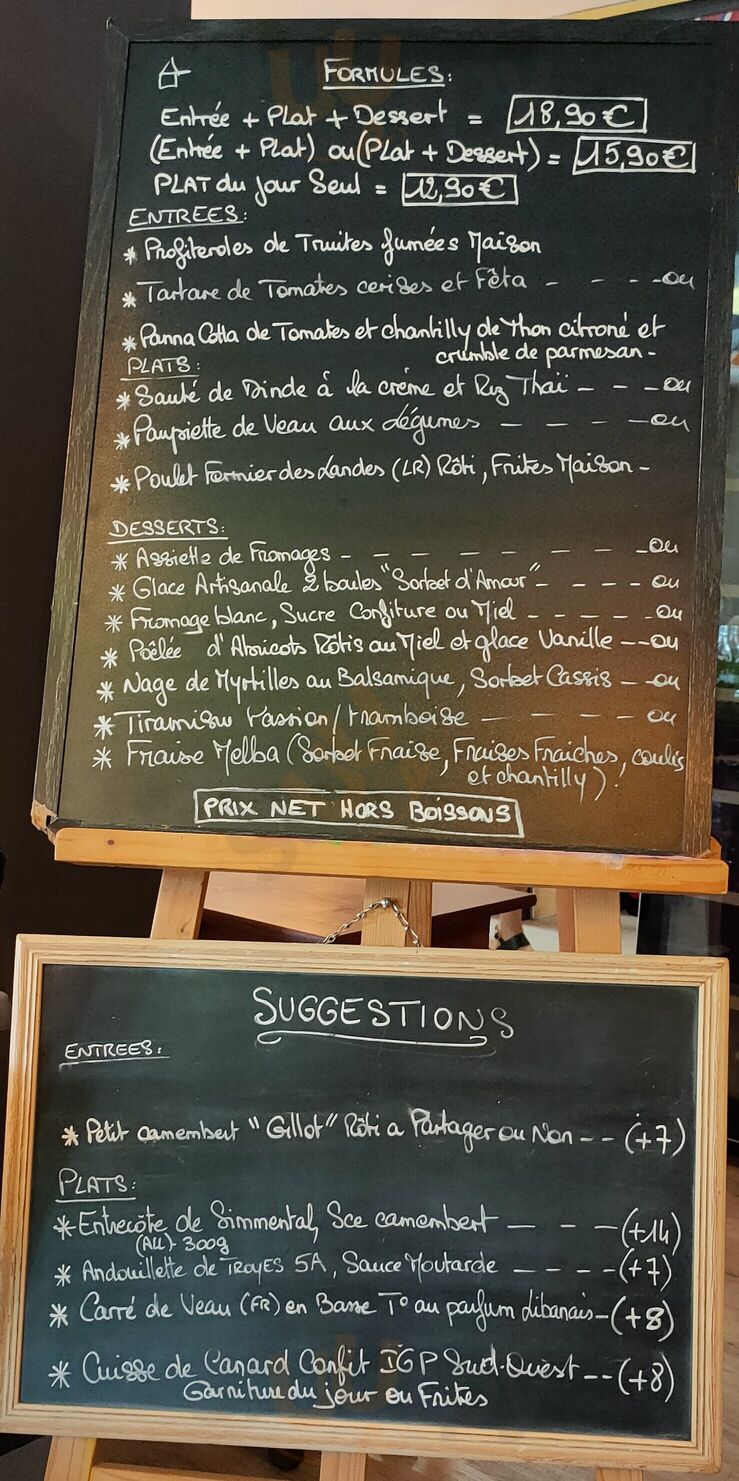 FORMULES:
Entrée + Plat + Dessert = 18,90€
(Entrée + Plat) ou (Plat + Dessert) = 15,90€
PLAT du jour Seul = 12,90€
ENTREES:
* Profiteroles de Truites fumées Maison
* Tartare de Tomates cerises et Fêta - - - - ou
* Panna Cotta de Tomates et chantilly de Thon citronné et
crumble de parmesan -
PLATS:
* Sauté de Dinde à la crème et Riz Thaï - - - ou
* Paupiette de Veau aux Légumes - - - - ou
* Poulet Fermier des Landes (LR) Rôti, Frites Maison -
DESSERTS:
* Assiette de Fromages - - - - - - - - ou
* Glace Artisanale 2 boules "Sorbet d'Amour" - - - - ou
* Fromage blanc, Sucre Confiture ou Miel - - - - - ou
* Poêlée d'Abricots Rôtis au Miel et glace Vanille -- ou
* Nage de Myrtilles au Balsamique, Sorbet Cassis - - ou
* Tiramisu Passion / Framboise - - - - ou
* Fraise Melba (Sorbet Fraise, Fraises Fraiches, coulis
et chantilly)!
PRIX NET HORS BOISSONS
SUGGESTIONS
ENTREES:
* Petit camembert "Gillot" Rôti a Partager ou Non -- (+7)
PLATS:
* Entrecôte de Simmental, Sce camembert - - - (+14)
(ALL) - 300g
* Andouillette de TROYES 5A, Sauce Moutarde - - - - (+7)
* Carré de Veau (FR) en Basse T° au parfum Libanais - (+8)
* Cuisse de Canard Confit IGP Sud-Ouest -- (+8)
Garniture du jour ou Frites